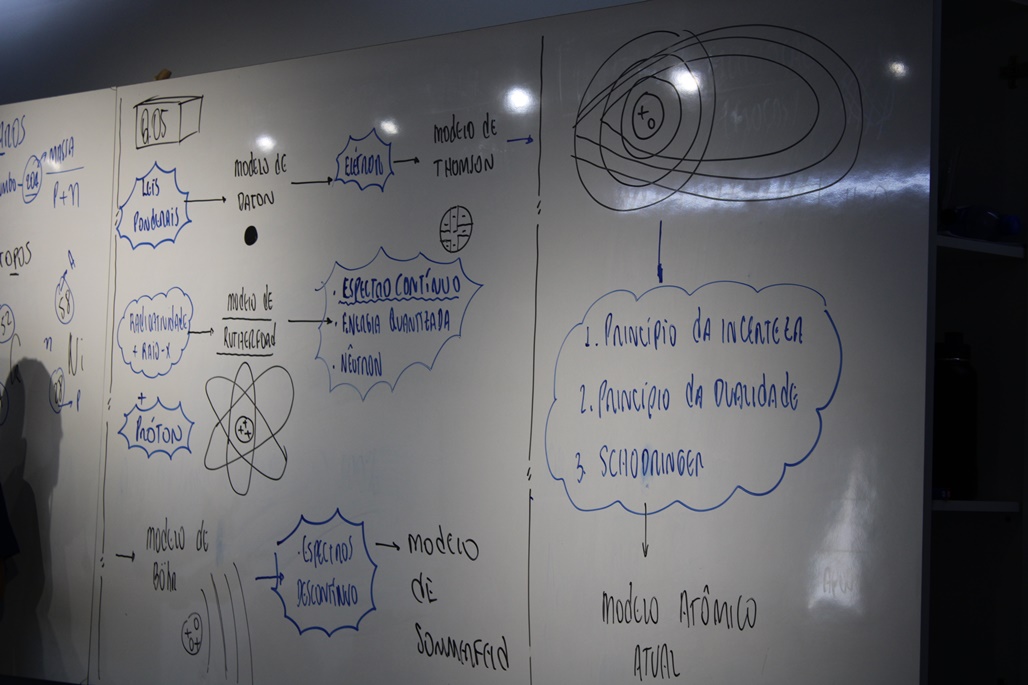 MASSA
P+N
A
58
n
Ni
P
LEIS
PONDERAIS
MODELO DE
DATON
ELÉTRON
MODELO DE
THOMSON
RADIOATIVIDADE
+ RAIO-X
+
PRÓTON
MODELO DE
RUTHERFOAD
. ESPECTRO CONTÍNUO
. ENERGIA QUANTIZADA
. NÊUTRON
MODELO DE
BÖHR
. ESPECTROS
DESCONTÍNUO
MODELO
DE
SOMMERFELD
1. PRINCÍPIO DA INCERTEZA
2. PRINCÍPIO DA DUALIDADE
3. SCHODRINGER
MODELO ATÔMICO
ATUAL